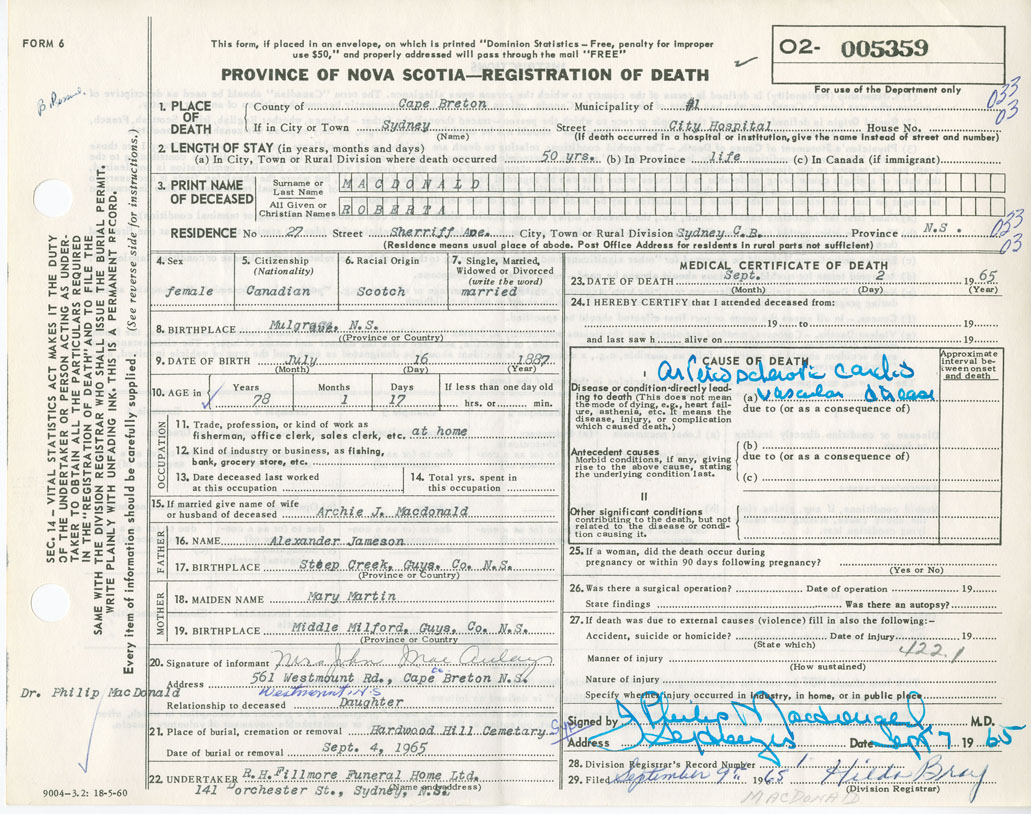 FORM 6
This form, if placed in an envelope, on which is printed "Dominion Statistics – Free, penalty for improper
use $50," and properly addressed will pass through the mail "FREE"
PROVINCE OF NOVA SCOTIA—REGISTRATION OF DEATH
O2- 005359
For use of the Department only
033
03
1. PLACE OF DEATH
County of Cape Breton Municipality of #1
If in City or Town Sydney Street City Hospital House No.
(Name) (If death occurred in a hospital or institution, give the name instead of street and number)
2. LENGTH OF STAY (in years, months and days)
(a) In City, Town or Rural Division where death occurred 50 yrs. (b) In Province life (c) In Canada (if immigrant)
3. PRINT NAME OF DECEASED
Surname or Last Name MACDONALD
All Given or Christian Names ROBERTA
033
03
RESIDENCE No 27 Street Sherriff Ave. City, Town or Rural Division Sydney C.B. Province N.S.
(Residence means usual place of abode. Post Office Address for residents in rural parts not sufficient)
4. Sex
female
5. Citizenship
(Nationality)
Canadian
6. Racial Origin
Scotch
7. Single, Married,
Widowed or Divorced
(write the word)
married
8. BIRTHPLACE Mulgrave, N.S.
(Province or Country)
9. DATE OF BIRTH July 16 1887
(Month) (Day) (Year)
10. AGE in
Years Months Days If less than one day old
78 1 17 hrs. or min.
OCCUPATION
11. Trade, profession, or kind of work as
fisherman, office clerk, sales clerk, etc. at home
12. Kind of industry or business, as fishing,
bank, grocery store, etc.
13. Date deceased last worked
at this occupation
14. Total yrs. spent in
this occupation
15. If married give name of wife
or husband of deceased Archie J. Macdonald
FATHER
16. NAME Alexander Jameson
17. BIRTHPLACE Steep Creek, Guys. Co. N.S.
(Province or Country)
MOTHER
18. MAIDEN NAME Mary Martin
19. BIRTHPLACE Middle Milford, Guys. Co. N.S.
(Province or Country)
20. Signature of informant Mrs John MacAulay
Address 561 Westmount Rd., Cape Breton N.S.
Westmount N.S
Relationship to deceased Daughter
21. Place of burial, cremation or removal Hardwood Hill Cemetary
Date of burial or removal Sept. 4, 1965
22. UNDERTAKER R.H. Fillmore Funeral Home Ltd.
(Name and address)
141 Dorchester St., Sydney, N.S.
MEDICAL CERTIFICATE OF DEATH
23. DATE OF DEATH Sept. 2 1965
(Month) (Day) (Year)
24. I HEREBY CERTIFY that I attended deceased from:
19 to 19
and last saw h alive on 19
CAUSE OF DEATH
Approximate
interval be-
tween onset
and death
I
Disease or condition directly lead-
ing to death (This does not mean
the mode of dying, e.g., heart fail-
ure, asthenia, etc. It means the
disease, injury, or complication
which caused death.)
arteriosclerotic cardio
(a) vascular disease
due to (or as a consequence of)
Antecedent causes
Morbid conditions, if any, giving
rise to the above cause, stating
the underlying condition last.
(b)
due to (or as a consequence of)
(c)
II
Other significant conditions
contributing to the death, but not
related to the disease or condi-
tion causing it.
25. If a woman, did the death occur during
pregnancy or within 90 days following pregnancy?
(Yes or No)
26. Was there a surgical operation? Date of operation 19
State findings Was there an autopsy?
27. If death was due to external causes (violence) fill in also the following:–
Accident, suicide or homicide? Date of injury 19
(State which)
422.1
Manner of injury
(How sustained)
Nature of injury
Specify whether injury occurred in industry, in home, or in public place
Signed by J Philip Macdougal M.D.
Address Sydney NS Date Sept 7 1965
28. Division Registrar's Record Number 1
29. Filed September 9th 1965 Hilda Bray
(Division Registrar)
MACDONALD
SEC. 14 – VITAL STATISTICS ACT MAKES IT THE DUTY
OF THE UNDERTAKER OR PERSON ACTING AS UNDER-
TAKER TO OBTAIN ALL THE PARTICULARS REQUIRED
IN THE "REGISTRATION OF DEATH" AND TO FILE THE
SAME WITH THE DIVISION REGISTRAR WHO SHALL ISSUE THE BURIAL PERMIT.
WRITE PLAINLY WITH UNFADING INK-THIS IS A PERMANENT RECORD.
Every item of information should be carefully supplied. (See reverse side for instructions.)
Dr. Philip MacDonald
9004-3.2: 18-5-60